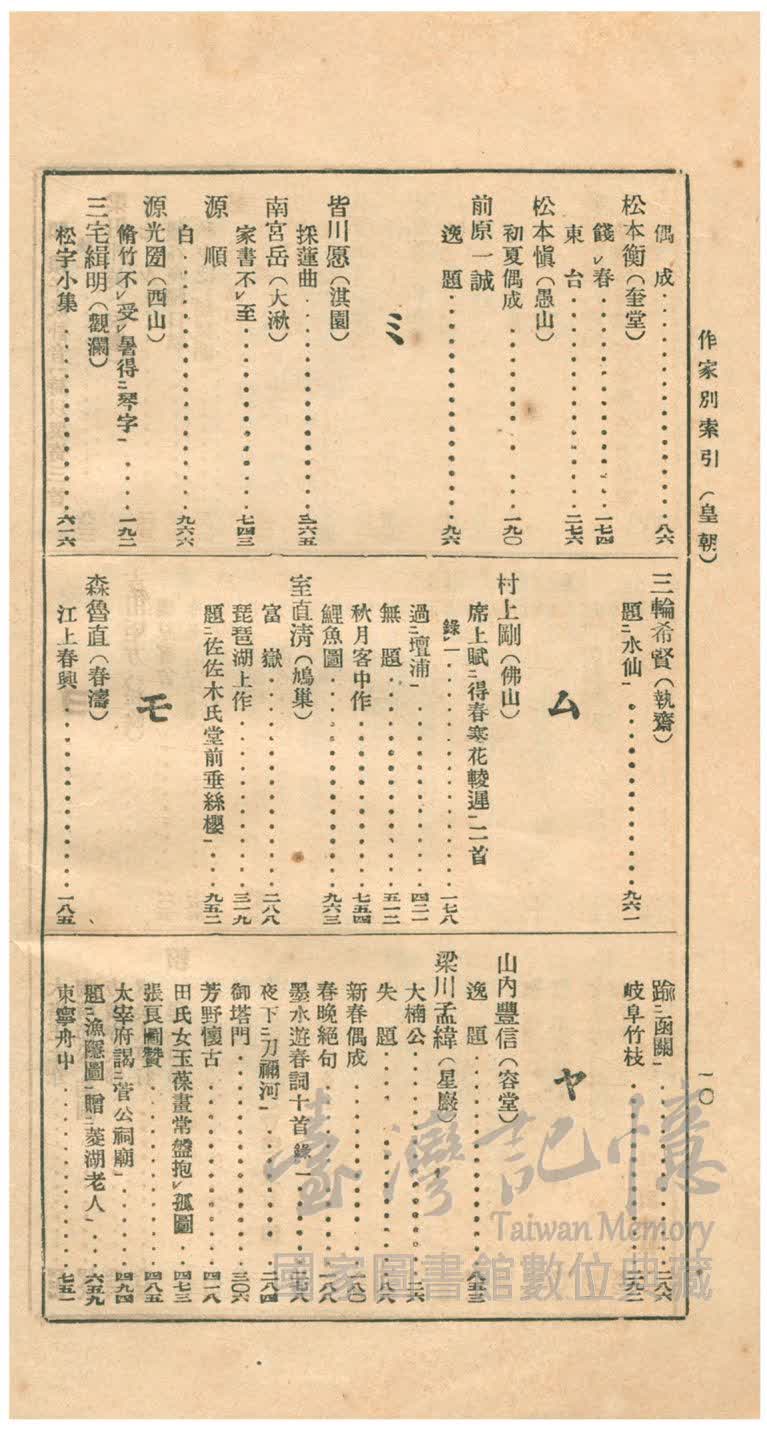 作家別索引（皇朝）
一〇
偶成・・・・・・八六
松本衡（奎堂）
餞レ春・・・・・・一七四
東台・・・・・・二七六
松本愼（愚山）
初夏偶成・・・・・・一九〇
前原一誠
逸題・・・・・・九六
ミ
皆川愿（淇園）
採蓮曲・・・・・・三六五
南宮岳（大湫）
家書不レ至・・・・・・七四三
源順
白・・・・・・九六六
源光圀（西山）
脩竹不レ受レ暑得二琴字一・・・・一九二
三宅緝明（觀瀾）
松字小集・・・・・・六一六
三輪希賢（執齋）
題二水仙一・・・・・・九六一
ム
村上剛（佛山）
席上賦二得春寒花較遲一二首
錄一・・・・・・一七八
過二壇浦一・・・・・・四二一
無題・・・・・・五一二
秋月客中作・・・・・・七五四
鯉魚圖・・・・・・九六三
室直淸（鳩巢）
富嶽・・・・・・二八八
琵琶湖上作・・・・・・三一九
題二佐佐木氏堂前垂絲櫻一・・・九五二
モ
森魯直（春濤）
江上春興・・・・・・一八五
踰二函關一・・・・・・二八六
岐阜竹枝・・・・・・二九二
ヤ
山內豐信（容堂）
逸題・・・・・・八五三
梁川孟緯（星巖）
大楠公・・・・・・二六
失題・・・・・・八六
新春偶成・・・・・・一八〇
春晚絕句・・・・・・一八八
墨水遊春詞十首錄一・・・・二七八
夜下二刀禰河一・・・・・・二八四
御塔門・・・・・・三〇六
芳野懷古・・・・・・四一八
田氏女玉葆畫常盤抱レ孤圖・・四七三
張良圖贊・・・・・・四八五
太宰府謁二菅公祠廟一・・・・四九四
題二漁隱圖一贈二菱湖老人一・・六五九
東寧舟中・・・・・・七五一
臺灣記憶
Taiwan Memory
國家圖書館數位典藏